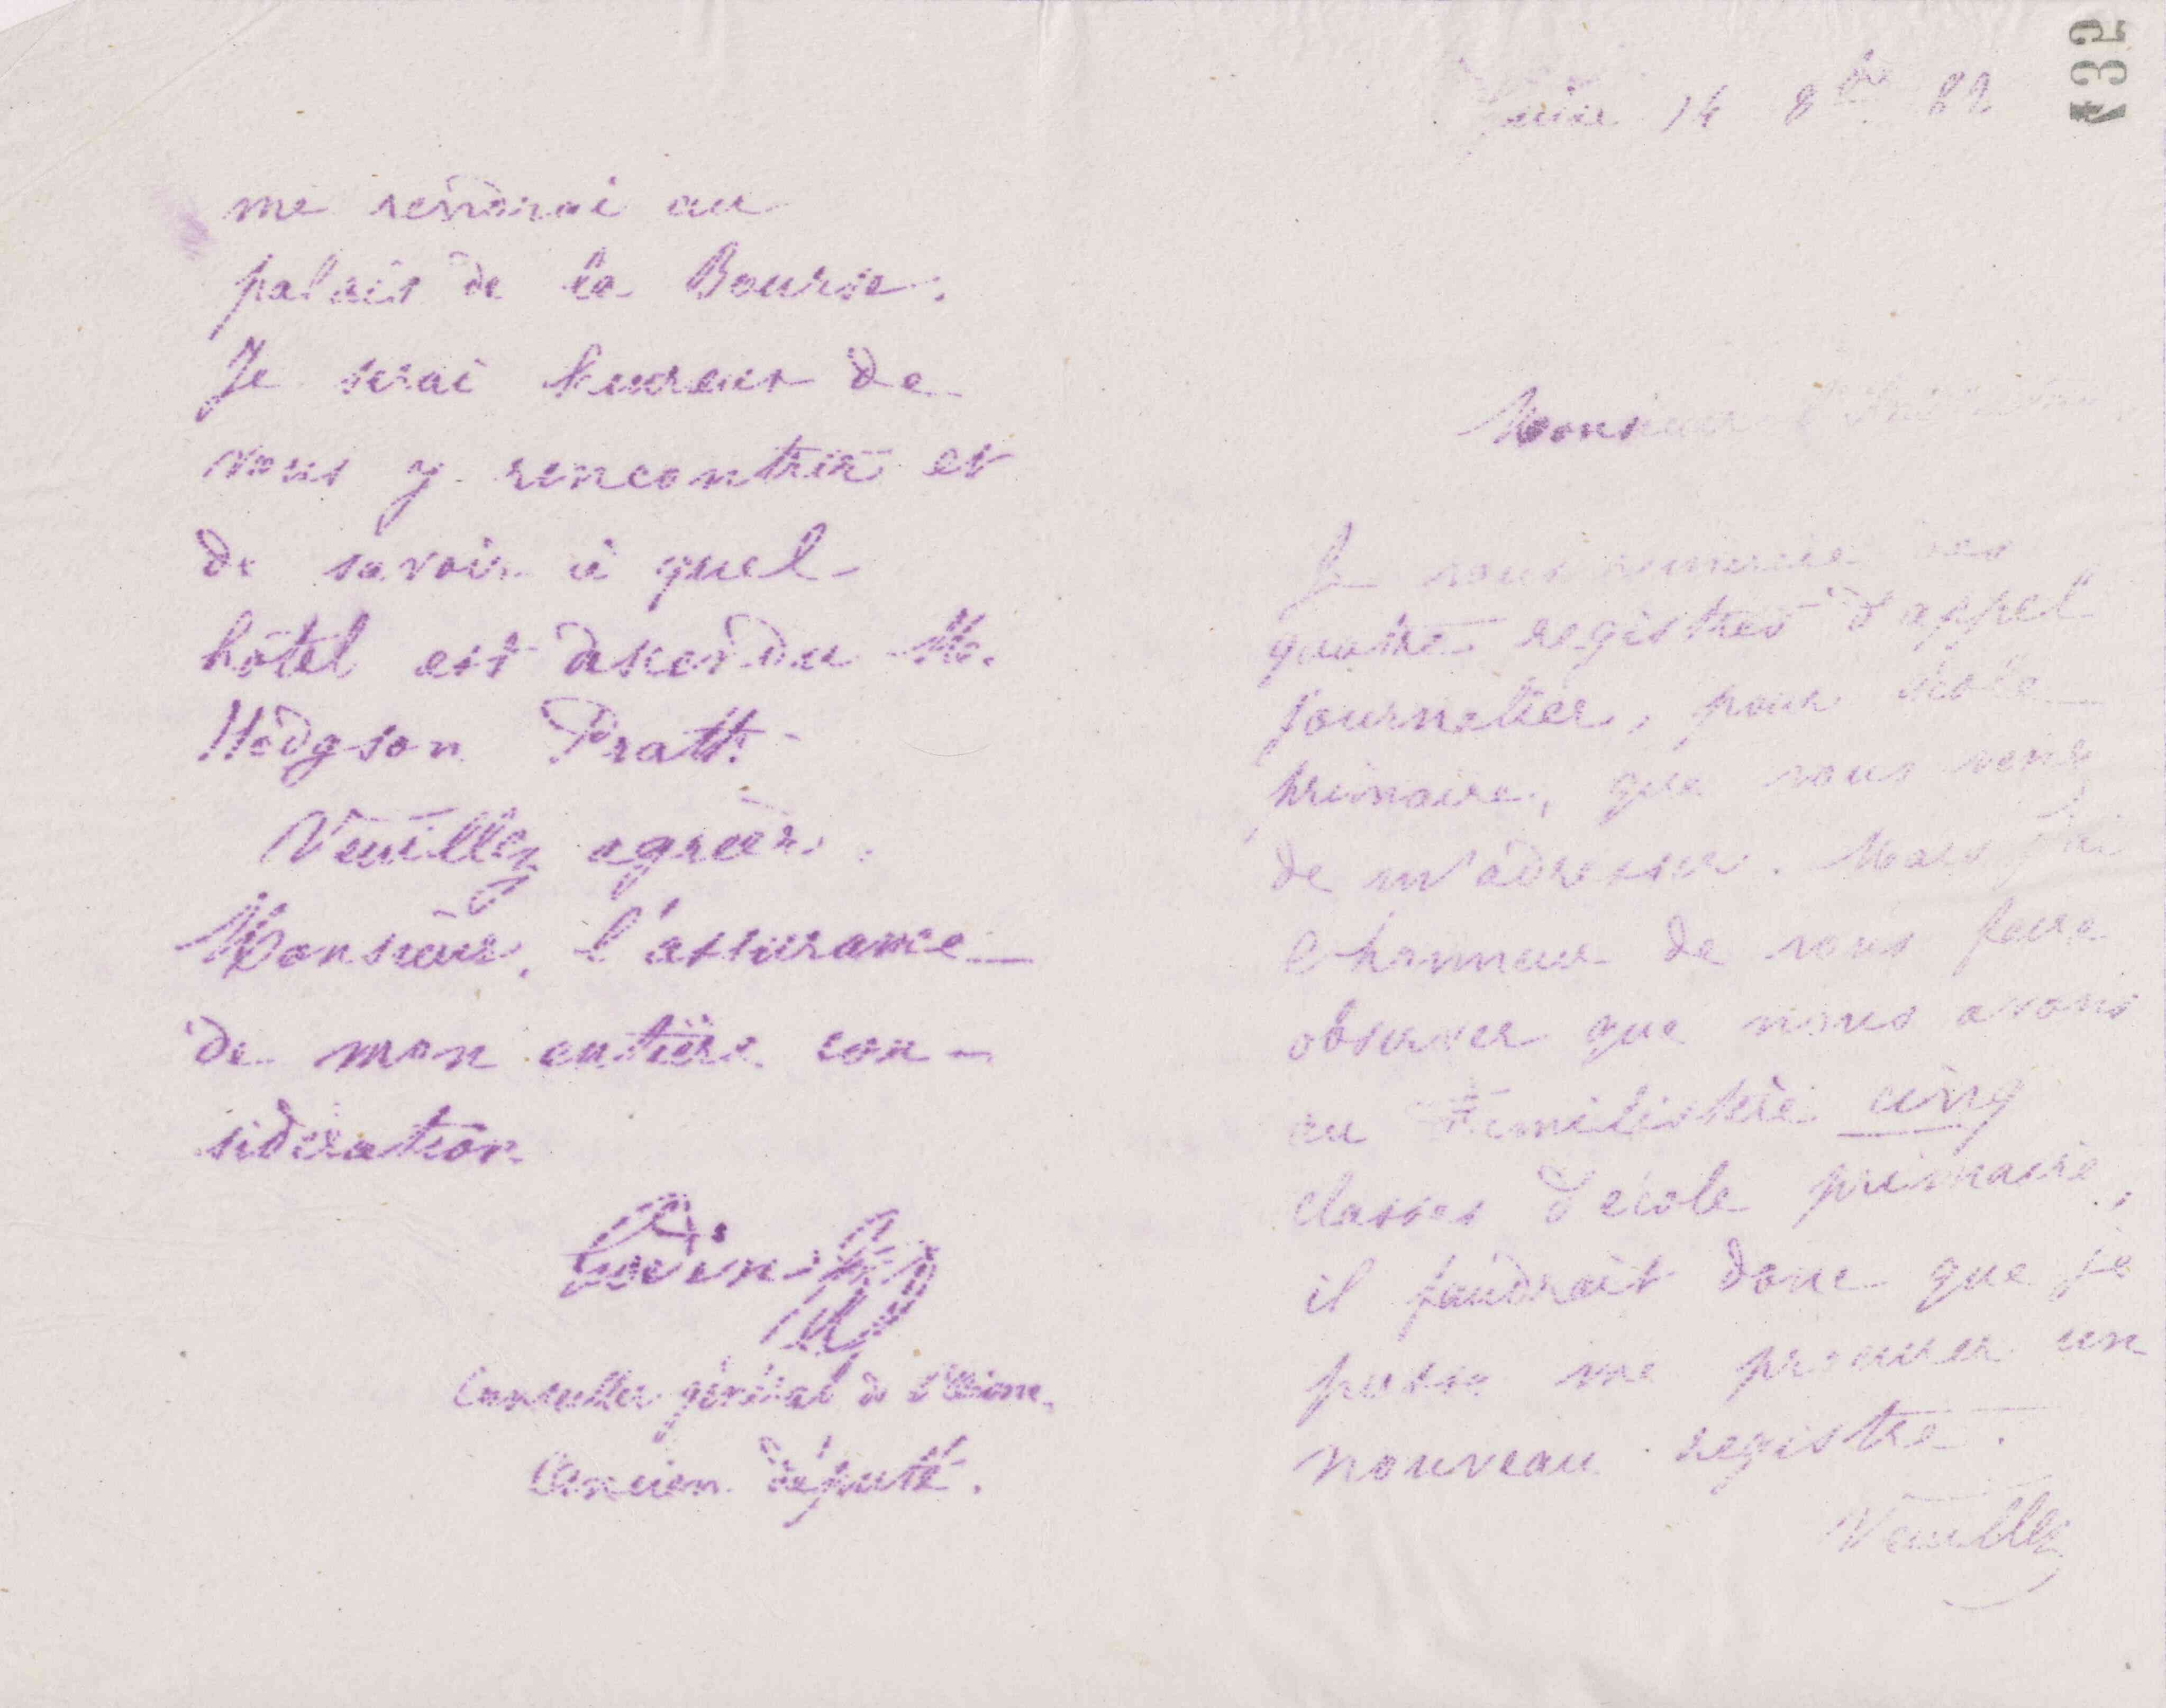 me rendrai au
palais de la Bourse.
Je serai heureux de
vous y rencontrer et
de savoir à quel
hôtel est descendu M.
Hodgson Pratt.
Veuillez agréer,
Monsieur, l'assurance
de mon entière con-
sidération
Godin
Conseiller général de l'Aisne,
Ancien député.
432
Guise 14 8bre 82
Monsieur
Je vous remercie des
quatre registres d'appel
journalier, pour école
primaire, que vous venez
de m'adresser. Mais j'ai
l'honneur de vous faire
observer que nous avons
au Familistère cinq
classes d'école primaire,
il faudrait donc que je
puisse me procurer un
nouveau registre.
Veuillez